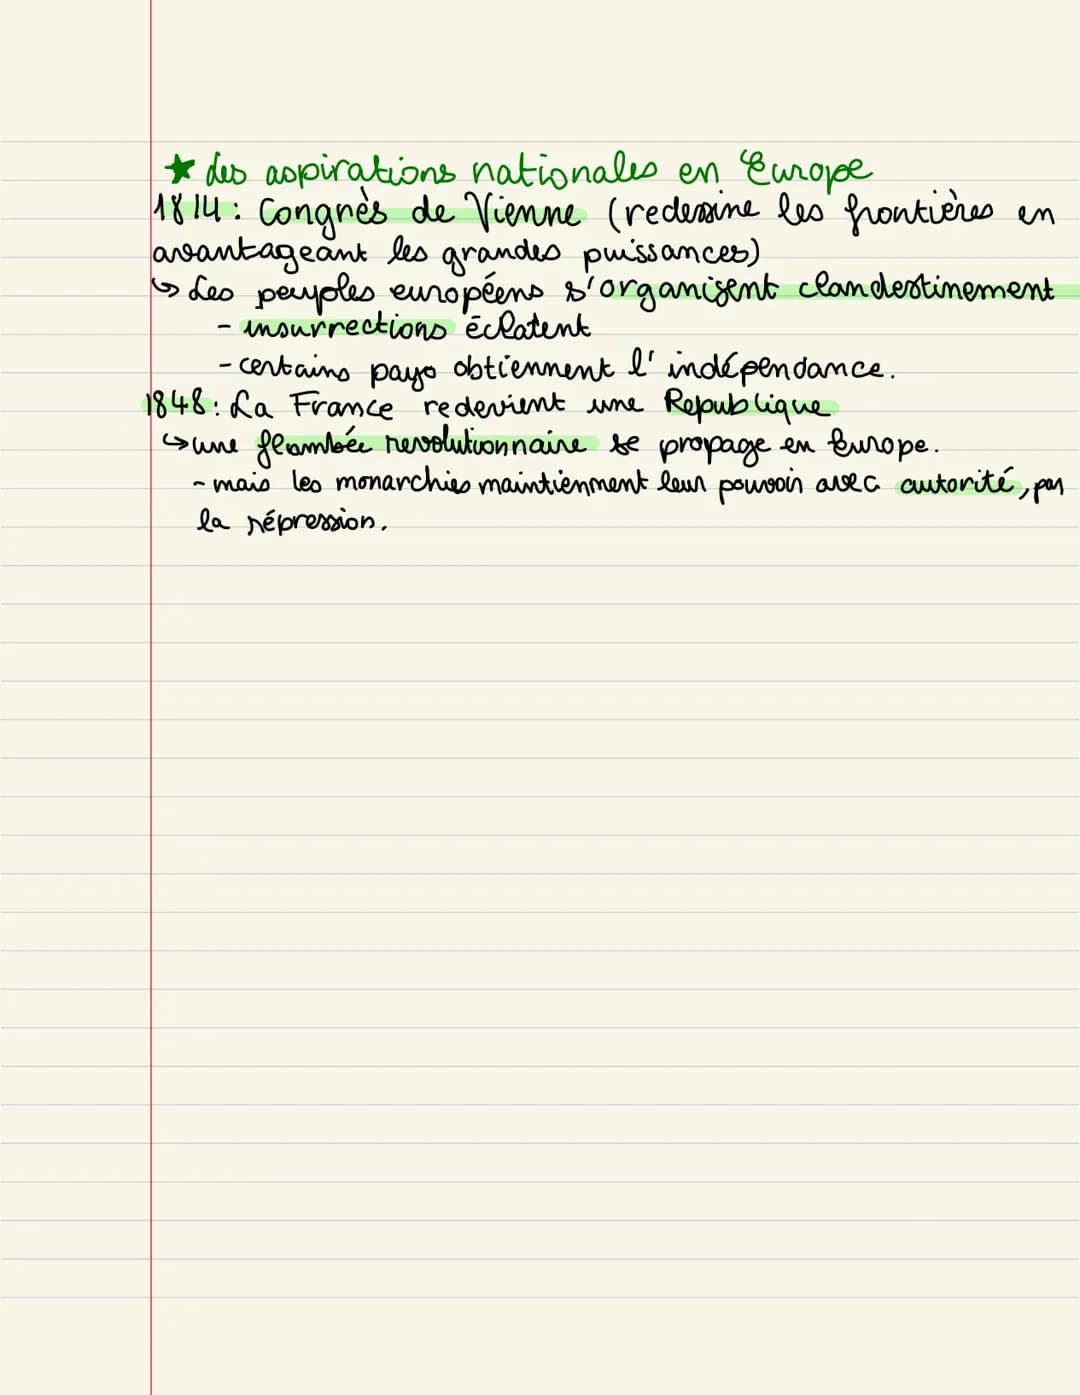 ★ des aspirations nationales en Europe
1814: Congrès de Vienne (redessine les frontières en
avantageant les grandes puissances)
↳ Les peuples européens s'organisent clandestinement
- insurrections éclatent
- certains pays obtiennent l'indépendance.
1848: La France redevient une Republique
↳ une flambée revolutionnaire se propage en Europe.
- mais les monarchies maintiennent leur pouvoir avec autorité, par
la répression.